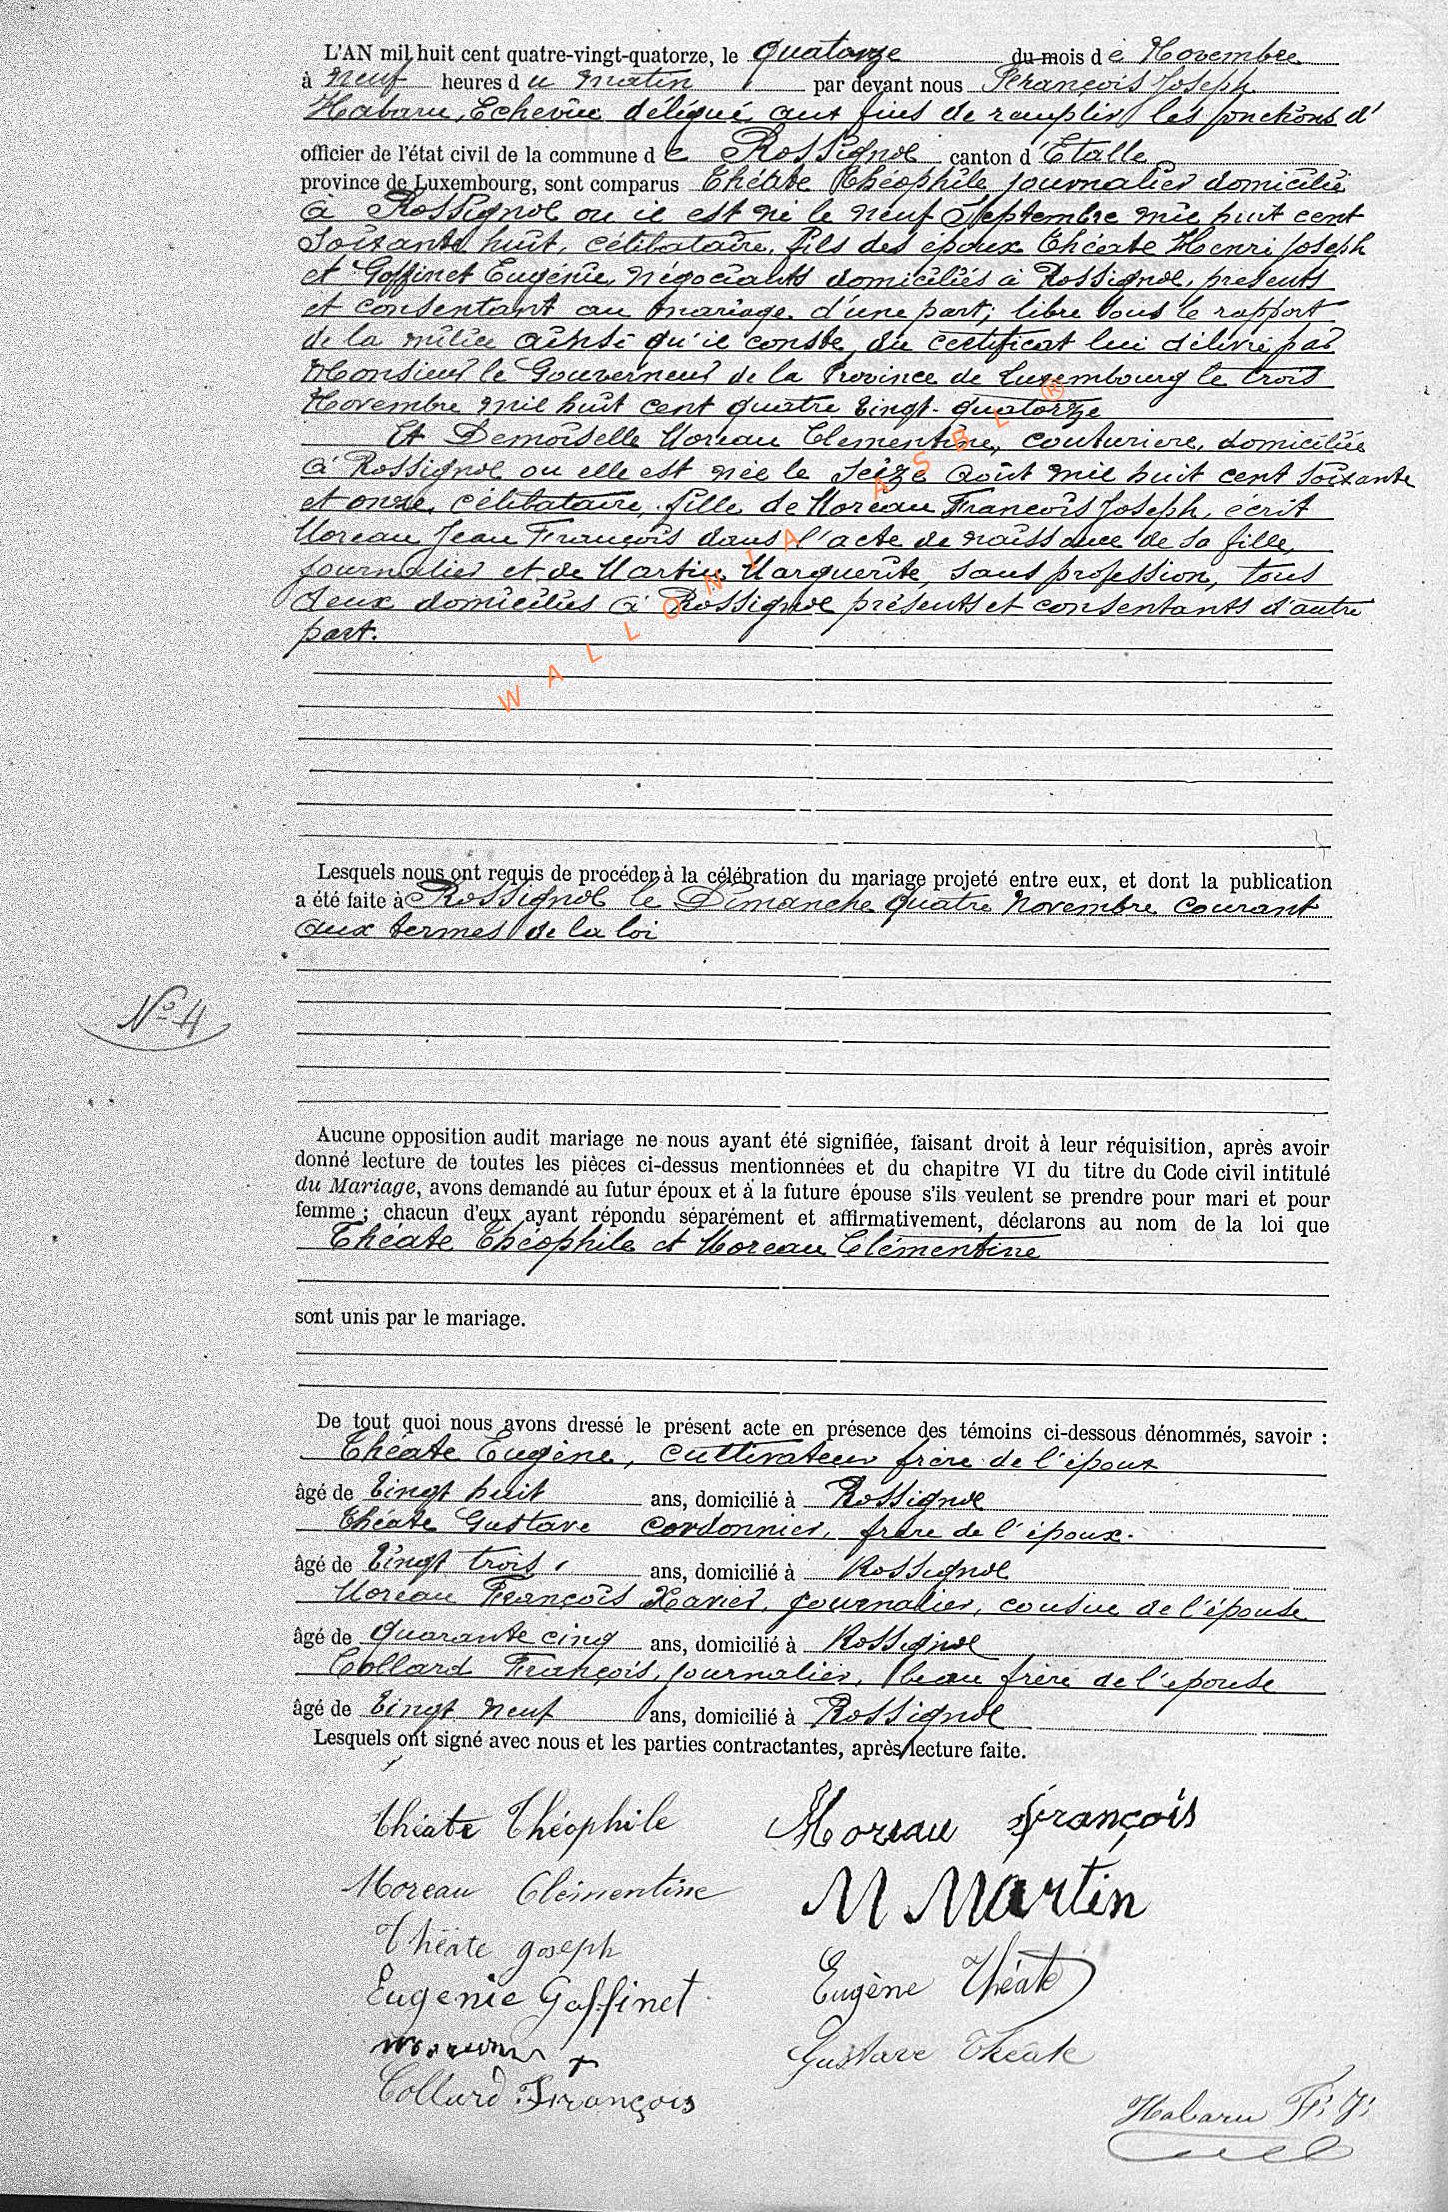 L'AN mil huit cent quatre-vingt-quatorze, le quatorze du mois de Novembre
à neuf heures du matin par devant nous François Joseph
Habaru, Echevin délégué aux fins de remplir les fonctions d'
officier de l'état civil de la commune de Rossignol canton d'Etalle
province de Luxembourg, sont comparus Théâte Théophile journalier domicilié
à Rossignol ou il est né le neuf Septembre mil huit cent
soixante huit, célibataire, fils des époux Théâte Henri Joseph
et Goffinet Eugénie, négociants domiciliés à Rossignol, présents
et consentant au mariage d'une part; libre sous le rapport
de la milice ainsi qu'il conste du certificat lui délivré par
Monsieur le Gouverneur de la Province de Luxembourg le trois
Novembre mil huit cent quatre vingt-quatorze
Et Demoiselle Moreau Clémentine, couturière, domiciliée
à Rossignol ou elle est née le seize Août mil huit cent soixante
et onze, célibataire, fille de Moreau François Joseph, écrit
Moreau Jean François dans l'acte de naissance de sa fille,
journalier et de Martin Marguerite, sans profession, tous
deux domiciliés à Rossignol présents et consentants d'autre
part.
WALLONIA ASBL ®
Lesquels nous ont requis de procéder à la célébration du mariage projeté entre eux, et dont la publication
a été faite à Rossignol le Dimanche quatre Novembre courant
aux termes de la loi
N° 4
Aucune opposition audit mariage ne nous ayant été signifiée, faisant droit à leur réquisition, après avoir
donné lecture de toutes les pièces ci-dessus mentionnées et du chapitre VI du titre du Code civil intitulé
du Mariage, avons demandé au futur époux et à la future épouse s'ils veulent se prendre pour mari et pour
femme ; chacun d'eux ayant répondu séparément et affirmativement, déclarons au nom de la loi que
Théâte Théophile et Moreau Clémentine
sont unis par le mariage.
De tout quoi nous avons dressé le présent acte en présence des témoins ci-dessous dénommés, savoir :
Théâte Eugène, cultivateur frère de l'époux
âgé de vingt huit ans, domicilié à Rossignol
Théâte Gustave cordonnier, frère de l'époux.
âgé de vingt trois, ans, domicilié à Rossignol
Moreau François Xavier, journalier, cousin de l'épouse
âgé de quarante cinq ans, domicilié à Rossignol
Collard François, journalier, beau frère de l'épouse
âgé de vingt neuf ans, domicilié à Rossignol
Lesquels ont signé avec nous et les parties contractantes, après lecture faite.
Théâte Théophile Moreau François
Moreau Clémentine M Martin
Théâte Joseph
Eugénie Goffinet Eugène Théâte
Gustave Théâte
Collard François
Habaru Fs. J.